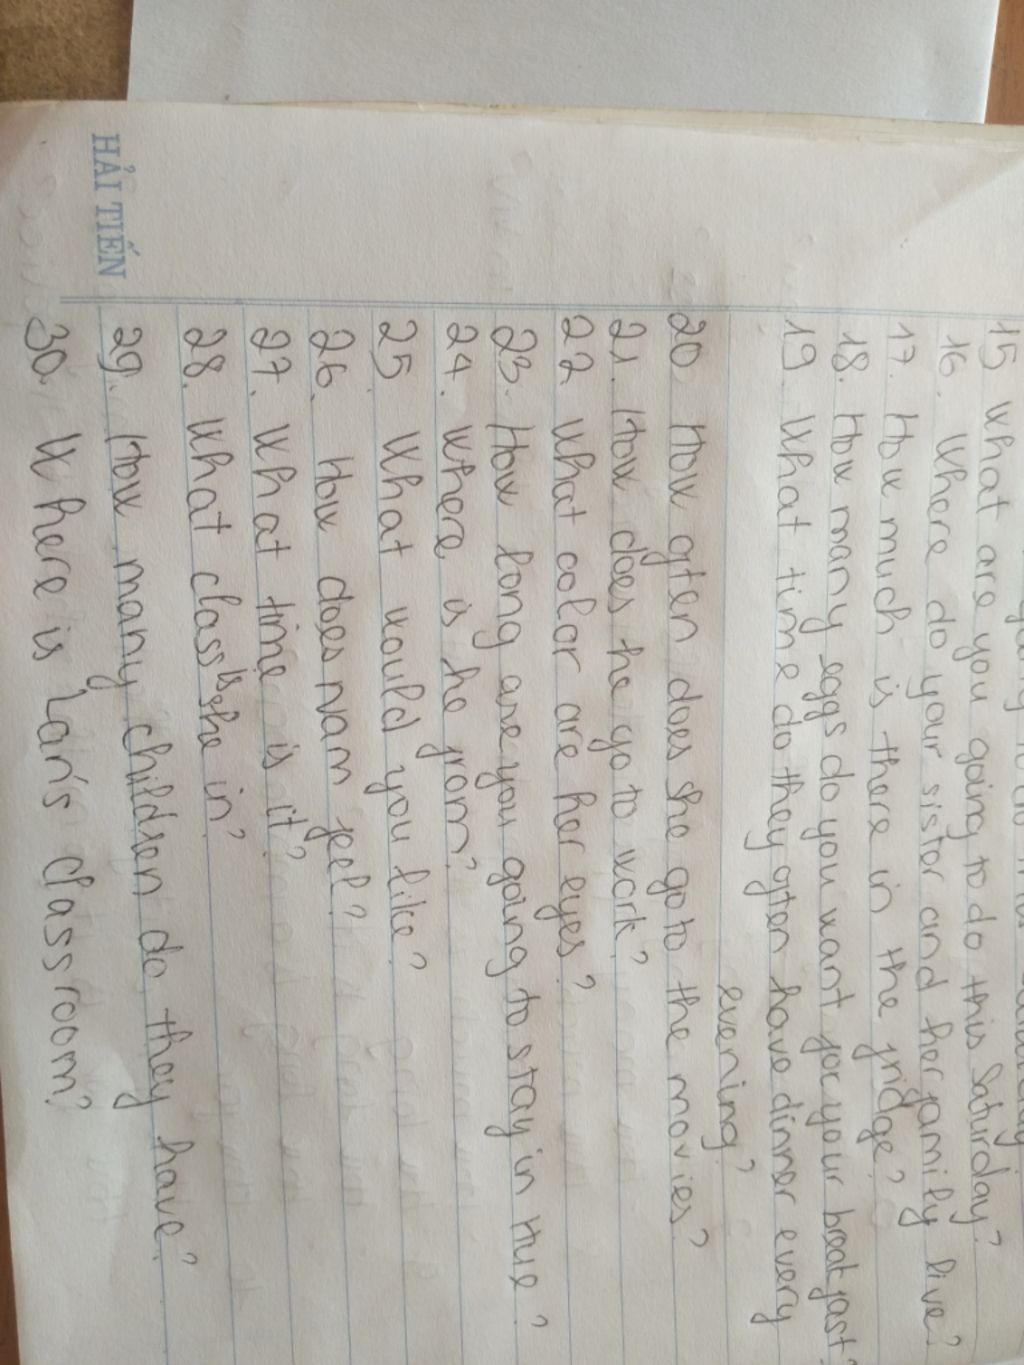 15 What are you going to do this Saturday?
16. Where do your sistor and her family live?
17. How much is there in the fridge?
18. How many eggs do you want for your breakfast?
19 What time do they often have dinner every
evening?
20 How often does she go to the movies?
21. How does he go to work?
22 What color are her eyes?
23. How long are you going to stay in Hue?
24. Where is he from?
25 What would you like?
26. How does Nam feel?
27. What time is it?
28. What class is she in?
29. How many children do they have?
30. Where is Lan's classroom?
HẢI TIẾN